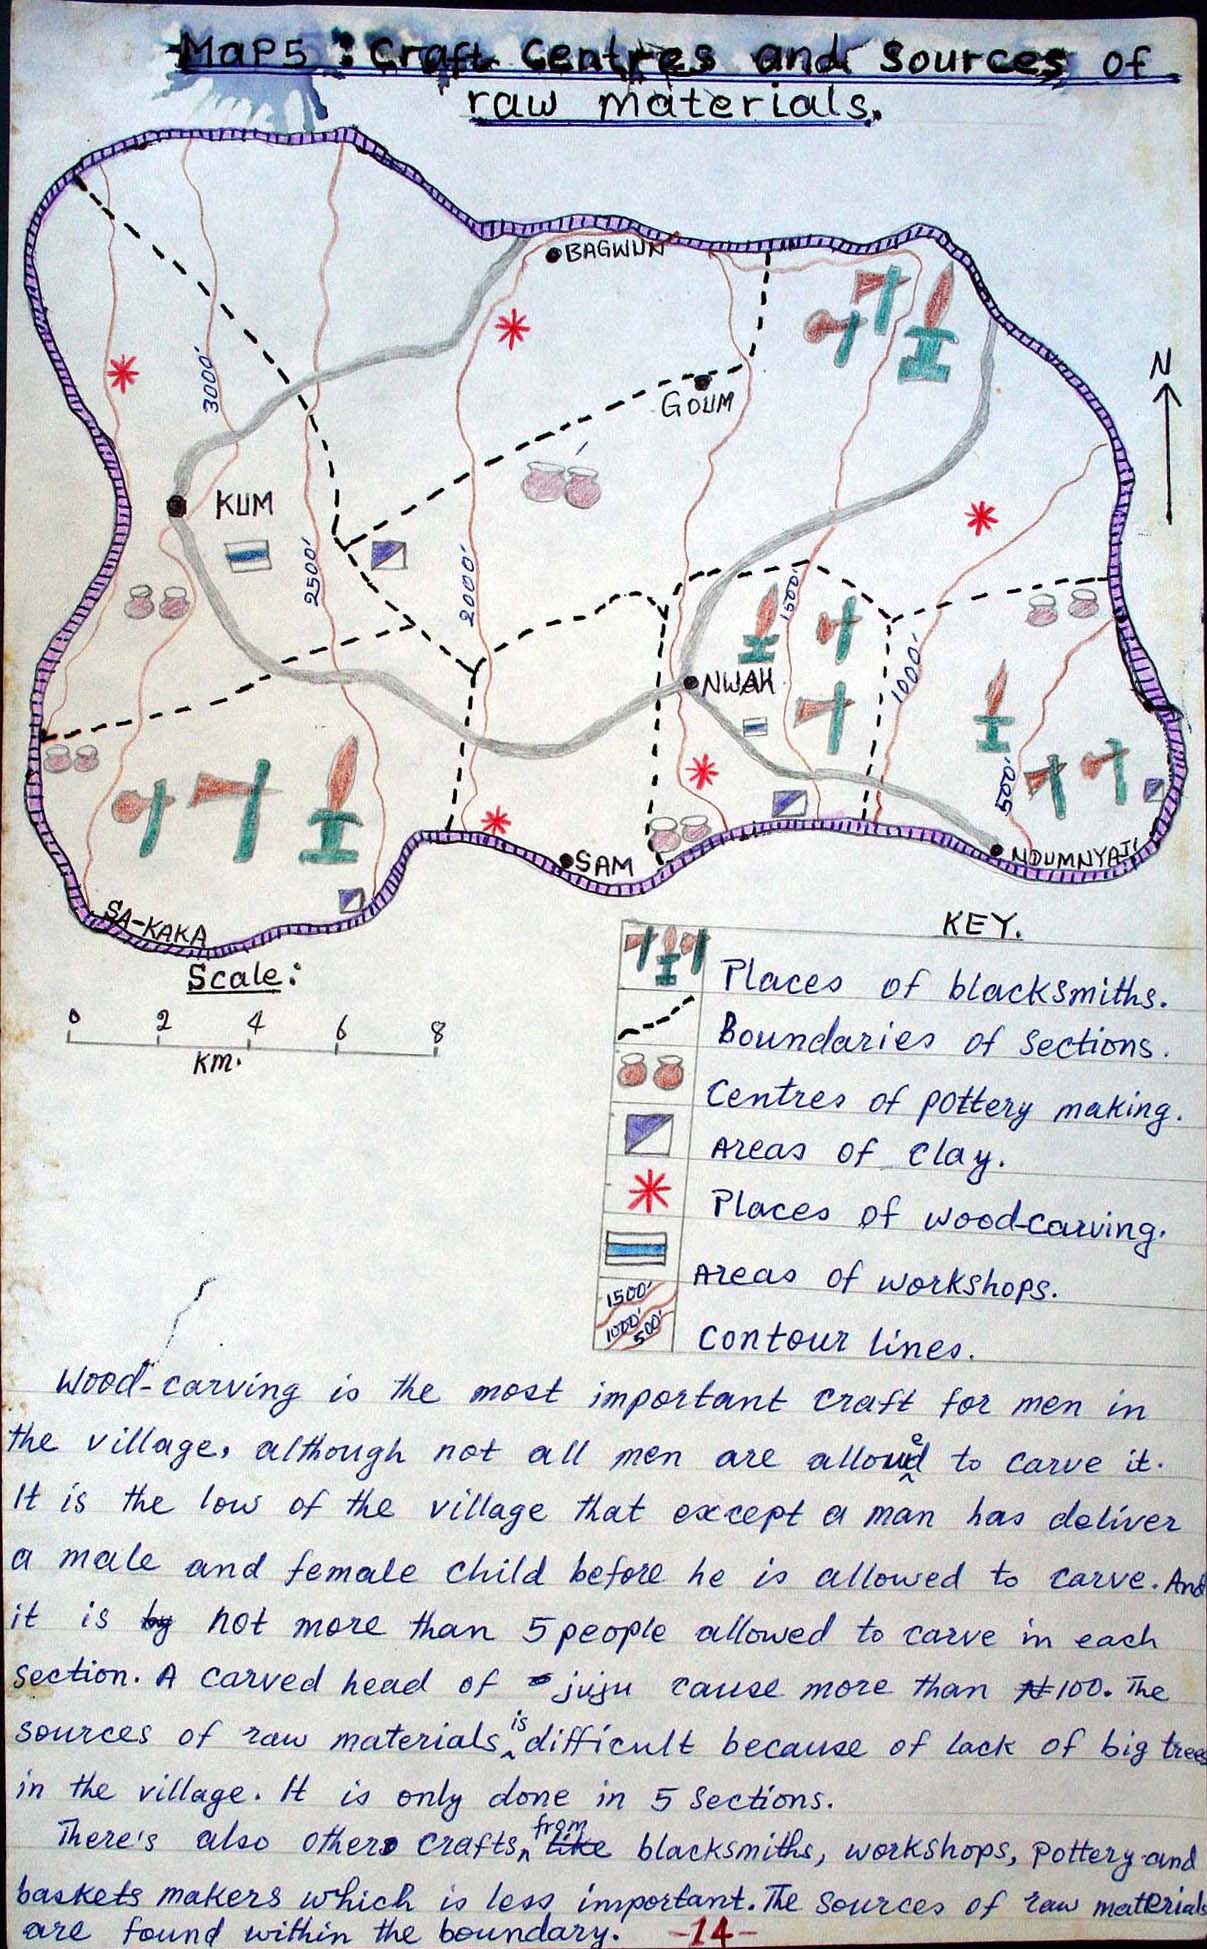 MaP5 : Craft Centres and Sources of
raw materials.
BAGWUN
N
3000'
GOUM
KUM
2500'
2000'
1500'
NWAH
1000'
500'
SAM
NDUMNYAJI
SA-KAKA
Scale:
0 2 4 6 8
Km.
KEY.
Places of blacksmiths.
Boundaries of Sections.
Centres of pottery making.
Areas of Clay.
Places of wood-carving.
Areas of workshops.
1500'
1000' 500'
Contour lines.
Wood-carving is the most important craft for men in
the village, although not all men are allowed to carve it.
It is the low of the village that except a man has deliver
a male and female child before he is allowed to carve. And
it is by not more than 5 people allowed to carve in each
section. A carved head of juju cause more than ₦100. The
sources of raw materials is difficult because of lack of big trees
in the village. It is only done in 5 Sections.
There's also others crafts, from like blacksmiths, workshops, pottery and
baskets makers which is less important. The Sources of raw materials
are found within the boundary. -14-